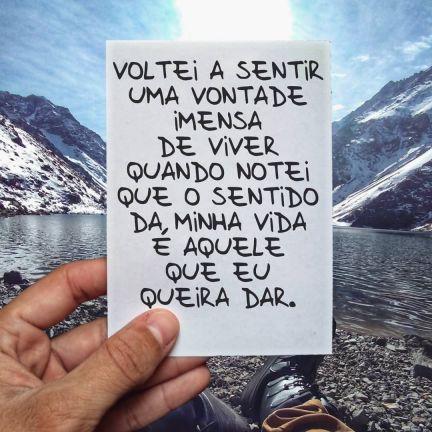 VOLTEI A SENTIR
UMA VONTADE
IMENSA
DE VIVER
QUANDO NOTEI
QUE O SENTIDO
DA MINHA VIDA
É AQUELE
QUE EU
QUEIRA DAR.